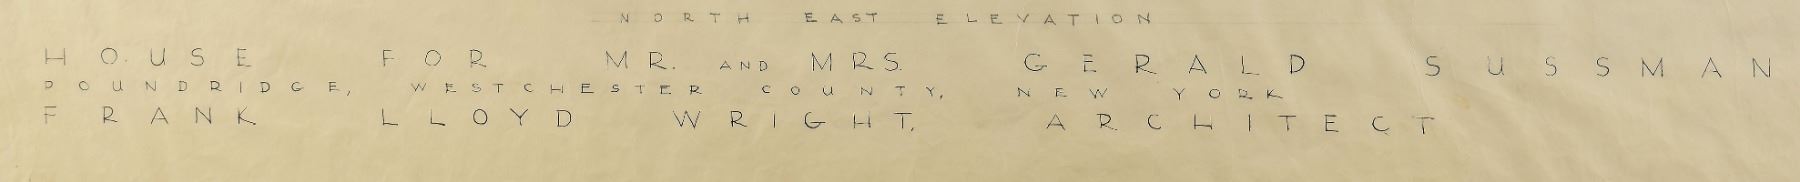 NORTH EAST ELEVATION
HOUSE FOR MR. AND MRS. GERALD SUSSMAN
POUNDRIDGE, WESTCHESTER COUNTY, NEW YORK
FRANK LLOYD WRIGHT, ARCHITECT